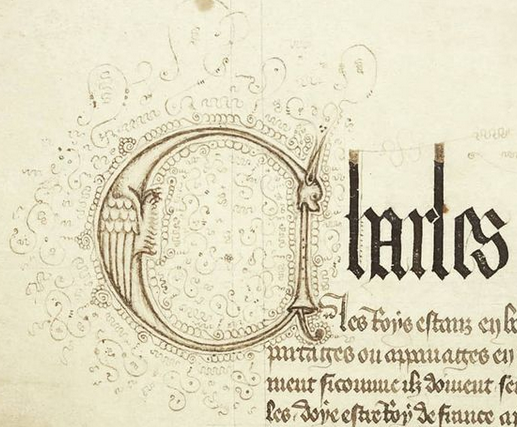 Charles
les Roys estanz en le
partaiges ou appanaiges en
ment sicomme ilz doivent
les doye estre Roy de france